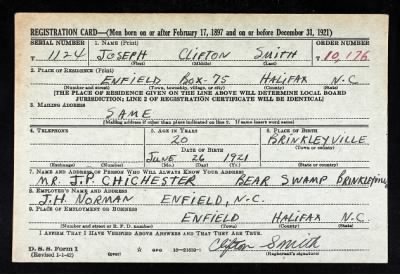 REGISTRATION CARD—(Men born on or after February 17, 1897 and on or before December 31, 1921)
SERIAL NUMBER 1. NAME (Print) ORDER NUMBER
T 1124 JOSEPH CLIFTON SMITH T 10,176
(First) (Middle) (Last)
2. PLACE OF RESIDENCE (Print)
ENFIELD BOX-75 HALIFAX N.C
(Number and street) (Town, township, village, or city) (County) (State)
[THE PLACE OF RESIDENCE GIVEN ON THE LINE ABOVE WILL DETERMINE LOCAL BOARD
JURISDICTION; LINE 2 OF REGISTRATION CERTIFICATE WILL BE IDENTICAL]
3. MAILING ADDRESS
SAME
[Mailing address if other than place indicated on line 2. If same insert word same]
4. TELEPHONE 5. AGE IN YEARS 6. PLACE OF BIRTH
20 BRINKLEYVILLE
DATE OF BIRTH (Town or county)
JUNE 26 1921
(Exchange) (Number) (Mo.) (Day) (Yr.) (State or country)
7. NAME AND ADDRESS OF PERSON WHO WILL ALWAYS KNOW YOUR ADDRESS
MR. J.P. CHICHESTER BEAR SWAMP
8. EMPLOYER'S NAME AND ADDRESS
J.H. NORMAN ENFIELD, N.C.
9. PLACE OF EMPLOYMENT OR BUSINESS
ENFIELD HALIFAX N.C
(Number and street or R. F. D. number) (Town) (County) (State)
I AFFIRM THAT I HAVE VERIFIED ABOVE ANSWERS AND THAT THEY ARE TRUE.
D. S. S. Form 1 Clifton Smith
(Revised 1-1-42) (over) (Registrant's signature)